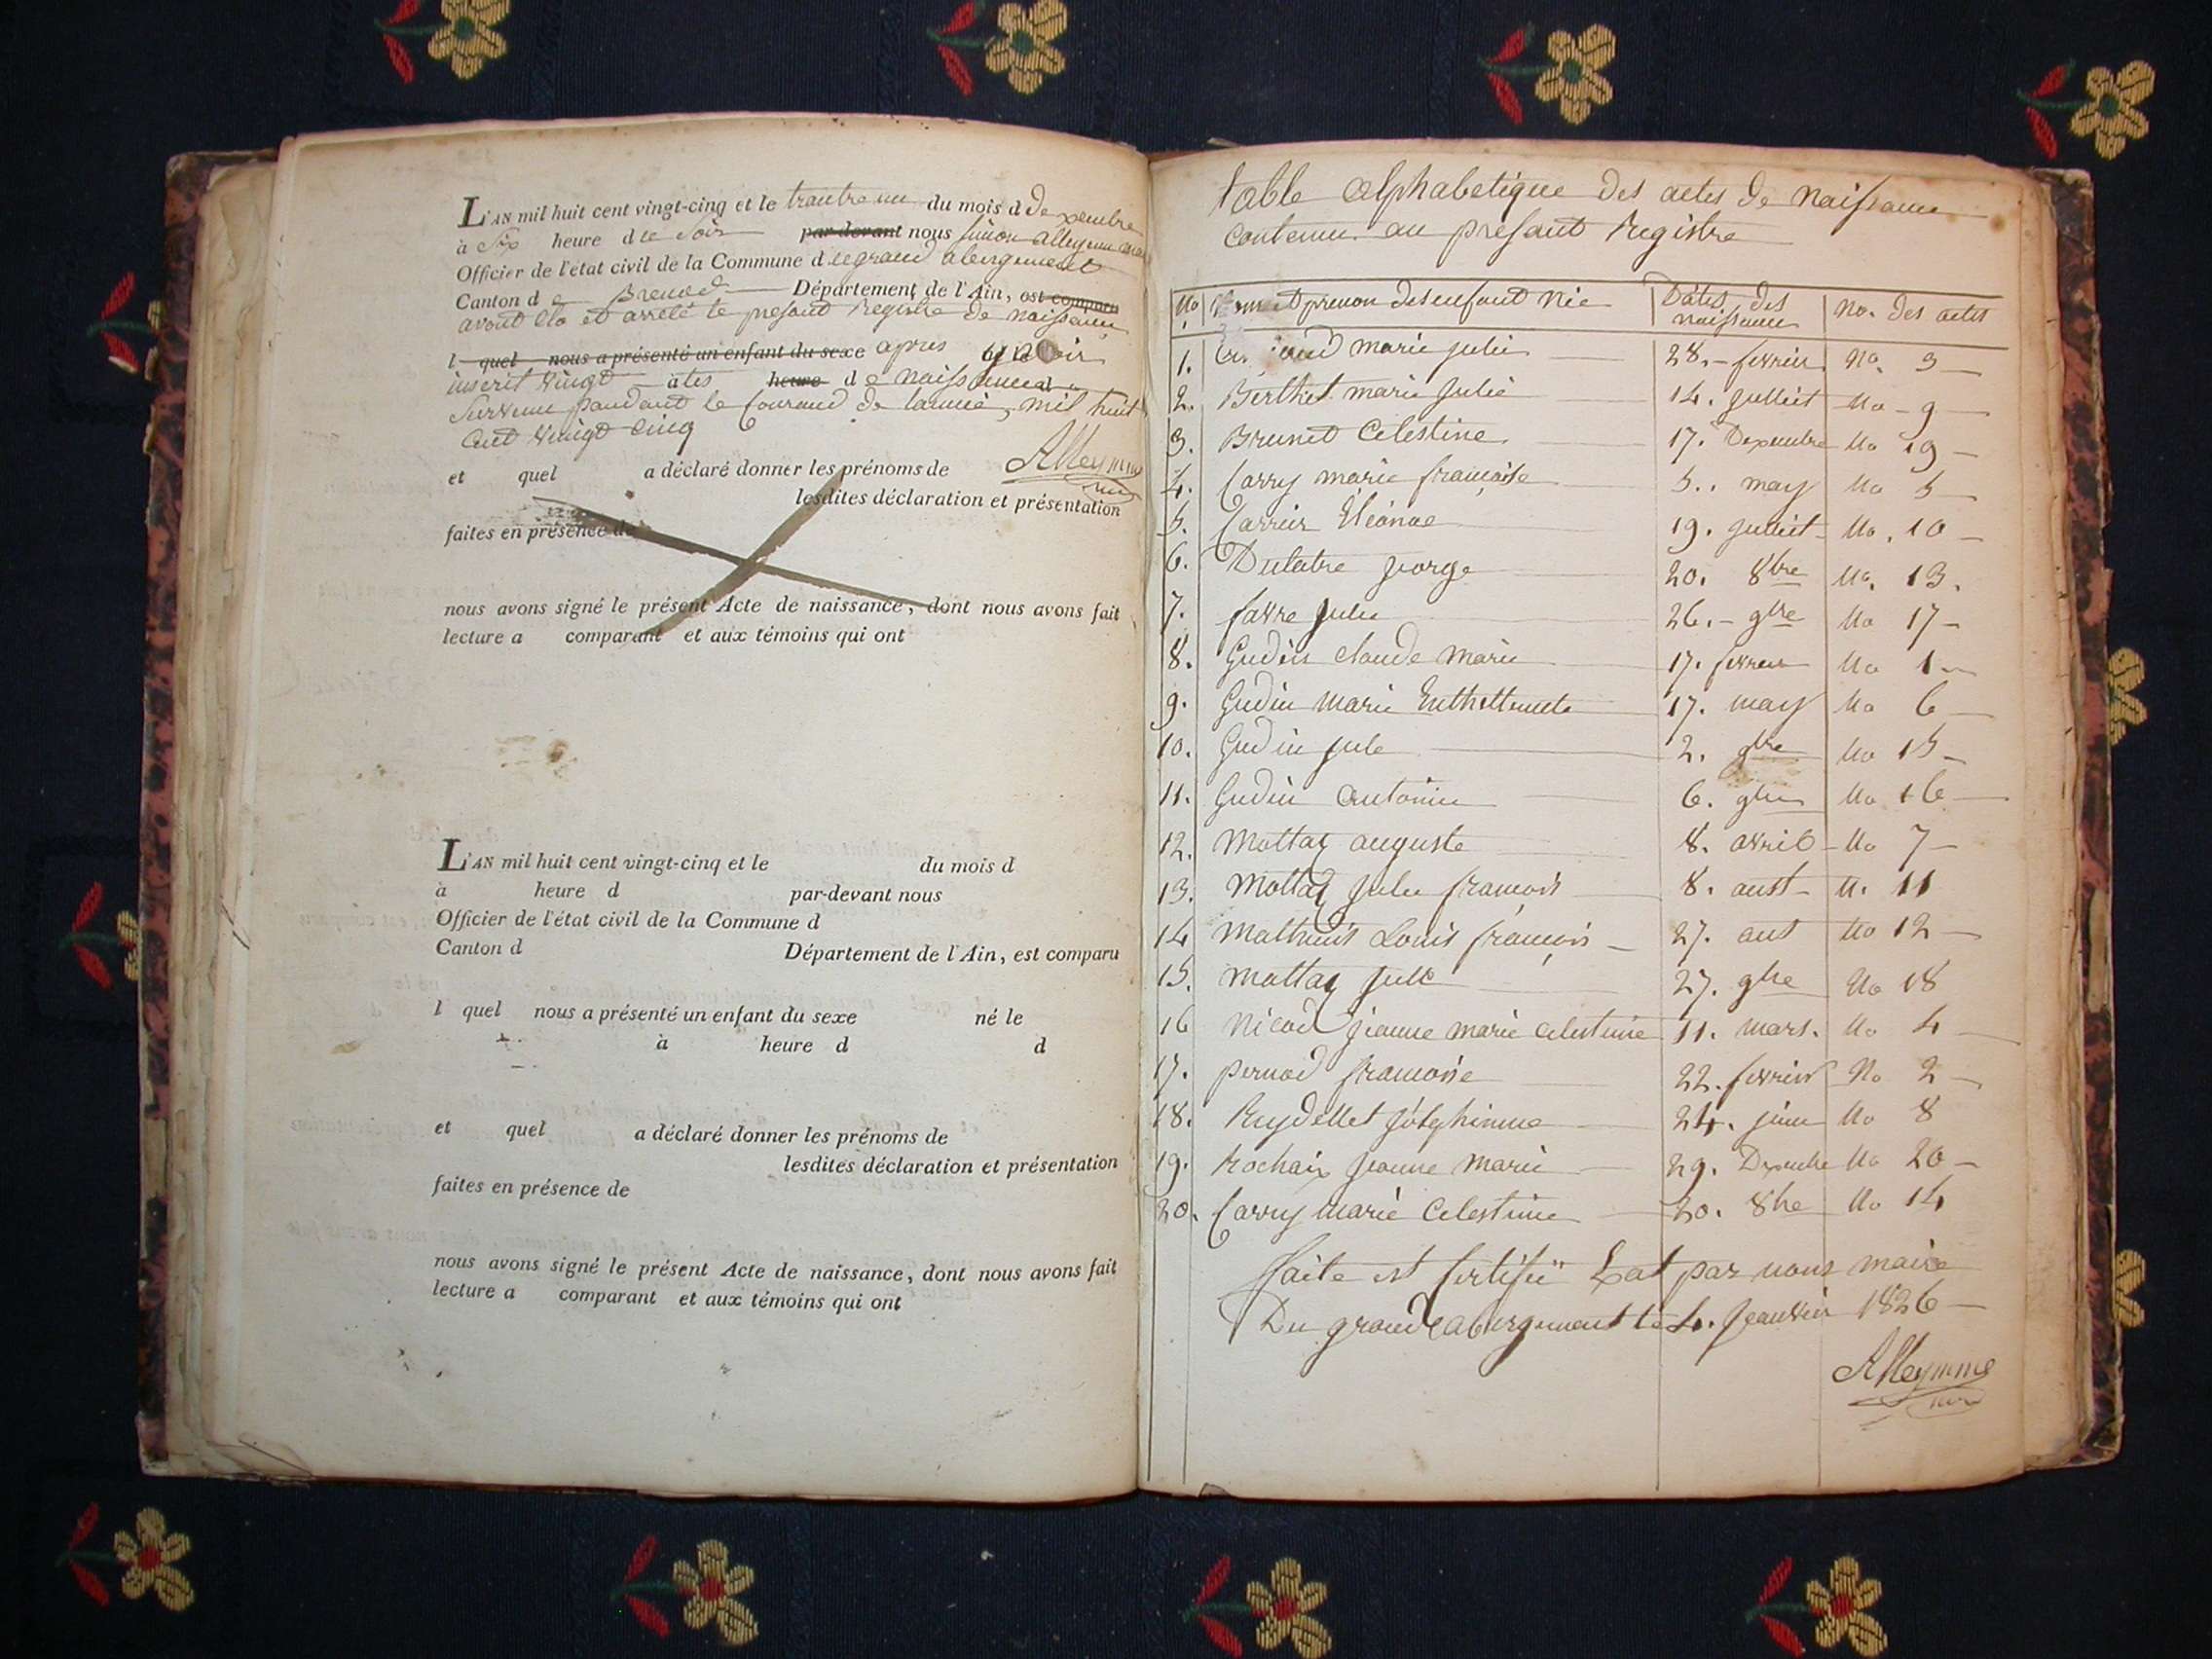 L'AN mil huit cent vingt-cinq et le trantre un du mois d de Dexembre
à Six heure d le Soir par-devant nous simon alleyme
Officier de l'état civil de la Commune d le grand abergement
Canton d e Brenod Département de l'Ain, est comparu
avont clo et arrêté le presant Registre de naissance
l quel nous a présenté un enfant du sexe apres y avoir
inscrit vingt actes heure d e naissance d
survenu pandant le Courand de lannié mil huit
Cent vingt Cinq
et quel a déclaré donner les prénoms de Alleymme
lesdites déclaration et présentation
faites en présence de
nous avons signé le présent Acte de naissance, dont nous avons fait
lecture a comparant et aux témoins qui ont
L'AN mil huit cent vingt-cinq et le du mois d
à heure d par-devant nous
Officier de l'état civil de la Commune d
Canton d Département de l'Ain, est comparu
l quel nous a présenté un enfant du sexe né le
à heure d d
et quel a déclaré donner les prénoms de
lesdites déclaration et présentation
faites en présence de
nous avons signé le présent Acte de naissance, dont nous avons fait
lecture a comparant et aux témoins qui ont
table alphabetique des actes de naissance
contenu au presant Registre
No Nom et prenon des enfant née Dates des naissance No. des actes
1. marie julie 28. fevrier No. 3
2. Berthet marie Julie 14. Julliet No 9
3. Brunet Celestine 17. Dexembre No 19
4. Carry marie françoise 5. may No 5
5. Carrier Eléonoe 19. Julliet No. 10
6. Dulatre jorge 20. 8bre No. 13.
7. favre Julie 26. 9bre No 17
8. Gudin claude Marie 17. fevrier No 1
9. Gudin Marie 17. may No 6
10. Gudin jule 2. 9bre No 15
11. Gudin Antonin 6. 9bre No 16
12. Mottaz auguste 8. avril No 7
13. Mottaz Julie françois 8. aust N. 11
14 Mathieu Louis françois 27. aut No 12
15. Mattaz Jule 27. 9bre No 18
16 Nicod jeanne marie Celestinie 11. mars. No 4
17. pernod françoise 22. fevrier No 2
18. Reydellet joséphinne 24. juin No 8
19. Rochaix jeanne Marie 29. Dexembre No 20
20. Carry Marie Celestinie 20. 8bre No 14
faite et Certifié par nous maire
Du grand abergement le 4. Jeanvier 1826
Alleymme